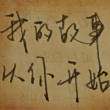 我的故事
从你开始